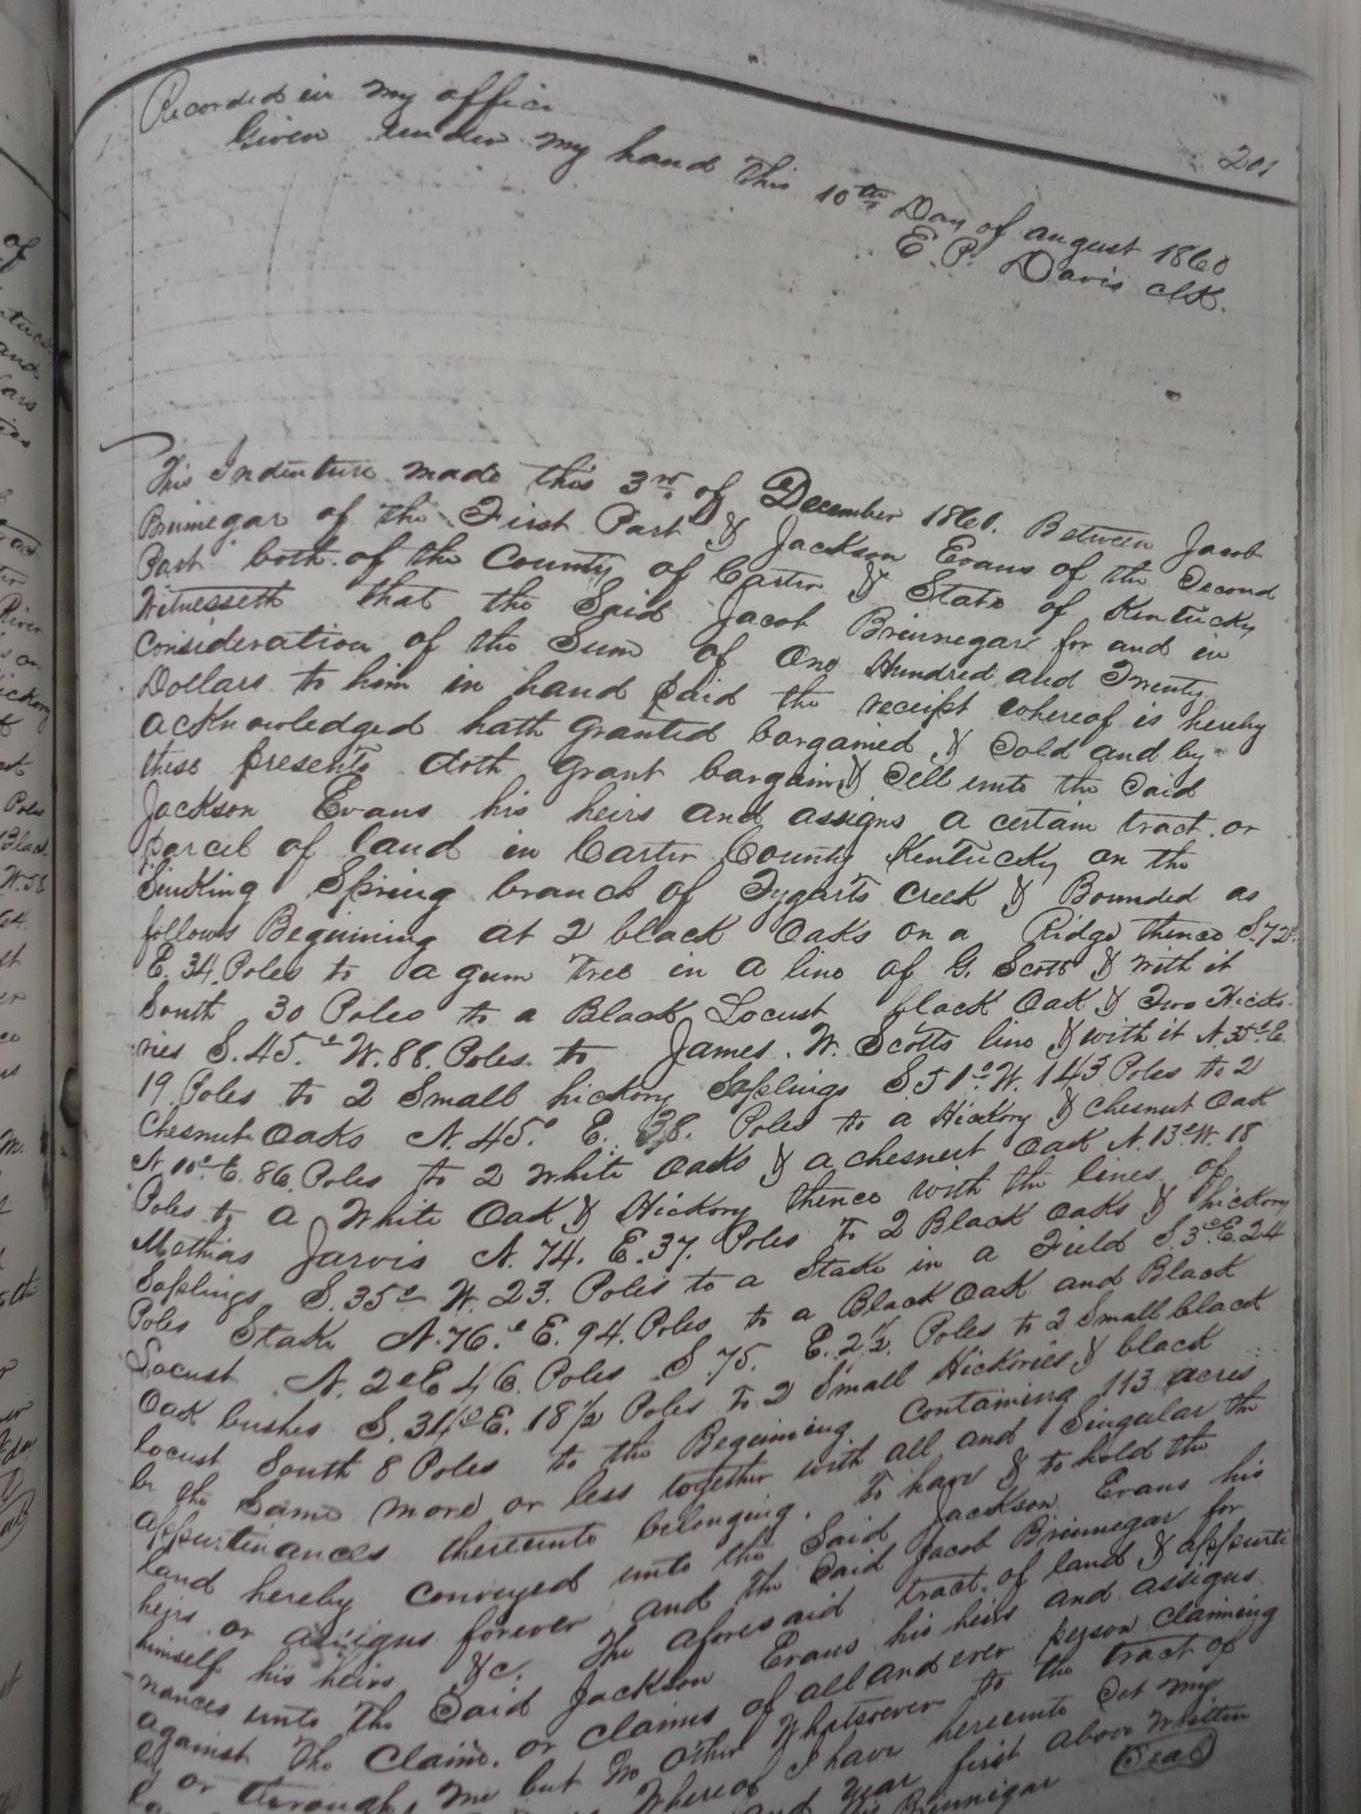 201
Recorded in my office
Given under my hand this 10th Day of august 1860
E. P. Davis clk.
This Indenture made this 3rd of December 1860. Between Jacob
Brinnegar of the First Part & Jackson Evans of the Second
Part both of the County of Carter & State of Kentucky
Witnesseth that the Said Jacob Brinnegar for and in
Consideration of the Sum of One Hundred and Twenty
Dollars to him in hand paid the receipt whereof is hereby
acknowledged hath granted bargained & Sold and by
these presents doth grant bargain & Sell unto the Said
Jackson Evans his heirs and assigns a certain tract or
parcel of land in Carter County Kentucky on the
Sinking Spring branch of Tygarts Creek & Bounded as
follows Beginning at 2 black Oaks on a Ridge thence S. 72
E. 34. Poles to a gum Tree in a line of G. Scotts & with it
South 30 Poles to a Black Locust black Oak & Two Hicko-
ries S. 45.° W. 88. Poles to James. W. Scotts line & with it N. 35° E.
19. Poles to 2 Small hickory Saplings S 51° W. 143 Poles to 2
Chesnut Oaks N. 45.° E. 38. Poles to a Hickory & Chesnut Oak
N. 10° E. 86. Poles to 2 White Oaks & a chesnut Oak N. 13° W. 18
Poles to a White Oak & Hickory thence with the lines of
Methias Jarvis N. 74. E. 37. Poles to 2 Black Oaks & hickory
Saplings S. 35° W. 23. Poles to a Stake in a Field S. 3° E. 24
Poles Stake N. 76.° E. 94. Poles to a Black Oak and Black
Locust N. 2° E 46. Poles S. 75. E. 2½. Poles to 2 Small black
Oak bushes S. 31½° E. 18½ Poles to 2 Small Hickories & black
locust South 8 Poles to the Beginning Containing 113 acres
be the Same more or less together with all and Singular the
appurtinances thereunto belonging. To have & to hold the
land hereby conveyed unto the Said Jackson Evans his
heirs or assigns forever and the Said Jacob Brinnegar for
himself his heirs &c. The aforesaid tract of land & appurte
nances unto the Said Jackson Evans his heirs and assigns
against the Claim. or claims of all and ever person claiming
by or through me but no other Whatsoever to the tract of
Whereof I have hereunto Set my
and year first above Written
Brinnigar Seal